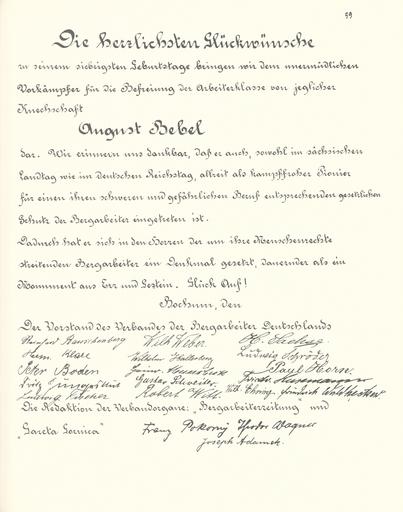 99
Die herzlichsten Glückwünsche
zu seinem siebzigsten Geburtstage bringen wir dem unermüdlichen
Vorkämpfer für die Befreiung der Arbeiterklasse von jeglicher
Knechschaft
August Bebel
dar. Wir erinnern uns dankbar, daß er auch, sowohl im sächsischen
Landtag wie im deutschen Reichstag, allzeit als kampffroher Pionier
für einen ihren schweren und gefährlichen Beruf entsprechenden gesetzlichen
Schutz der Bergarbeiter eingetreten ist.
Dadurch hat er sich in den Herzen der um ihre Menschenrechte
streitenden Bergarbeiter ein Denkmal gesetzt, dauernder als ein
Monument aus Erz und Gestein. Glück Auf!
Bochum, den
Der Vorstand des Verbandes der Bergarbeiter Deutschlands
Weber
Ludwig Schröder
Peter Boden Paul Horn.
Gustav
Robert
Die Redaktion der Verbandorgane: „Bergarbeiterzeitung und
„Gazeta Gornica" Franz Pokorny Theodor Wagner
Joseph Adamek.